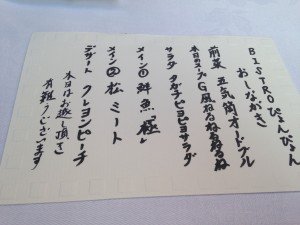 BISTROぴょんぴょん
おしながき
前菜 五気筒オードブル
本日のスープ G風ねるねるねるね
サラダ タカチピヨピヨサラダ
メイン① 鮮魚『極』
メイン② 松ミート
デザート クレヨンピーチ
本日はお越し頂き
有難うございます